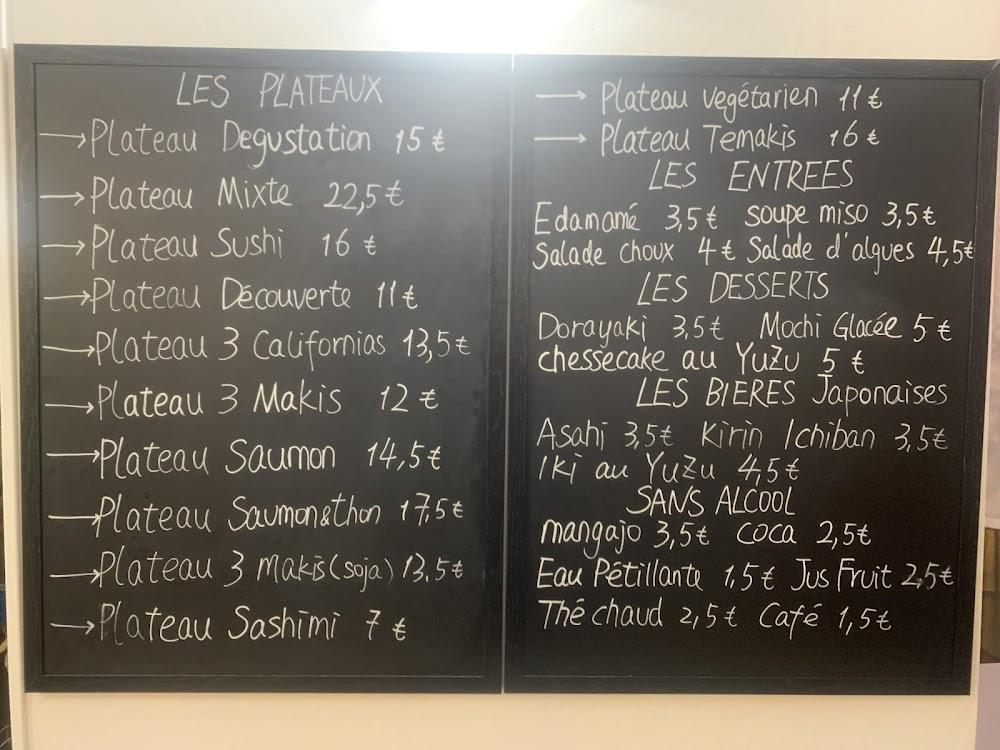 LES PLATEAUX
→ Plateau Degustation 15 €
→ Plateau Mixte 22,5 €
→ Plateau Sushi 16 €
→ Plateau Découverte 11 €
→ Plateau 3 Californias 13,5 €
→ Plateau 3 Makis 12 €
→ Plateau Saumon 14,5 €
→ Plateau Saumon&thon 17,5 €
→ Plateau 3 makis (soja) 13,5 €
→ Plateau Sashimi 7 €
→ Plateau vegétarien 11 €
→ Plateau Temakis 16 €
LES ENTREES
Edamamé 3,5 € soupe miso 3,5 €
Salade choux 4 € Salade d'algues 4,5€
LES DESSERTS
Dorayaki 3,5 € Mochi Glacée 5 €
chessecake au YuZu 5 €
LES BIERES Japonaises
Asahi 3,5 € Kirin Ichiban 3,5€
Iki au YuZu 4,5 €
SANS ALCOOL
mangajo 3,5 € coca 2,5€
Eau Pétillante 1,5 € Jus Fruit 2,5€
Thé chaud 2,5 € Café 1,5€